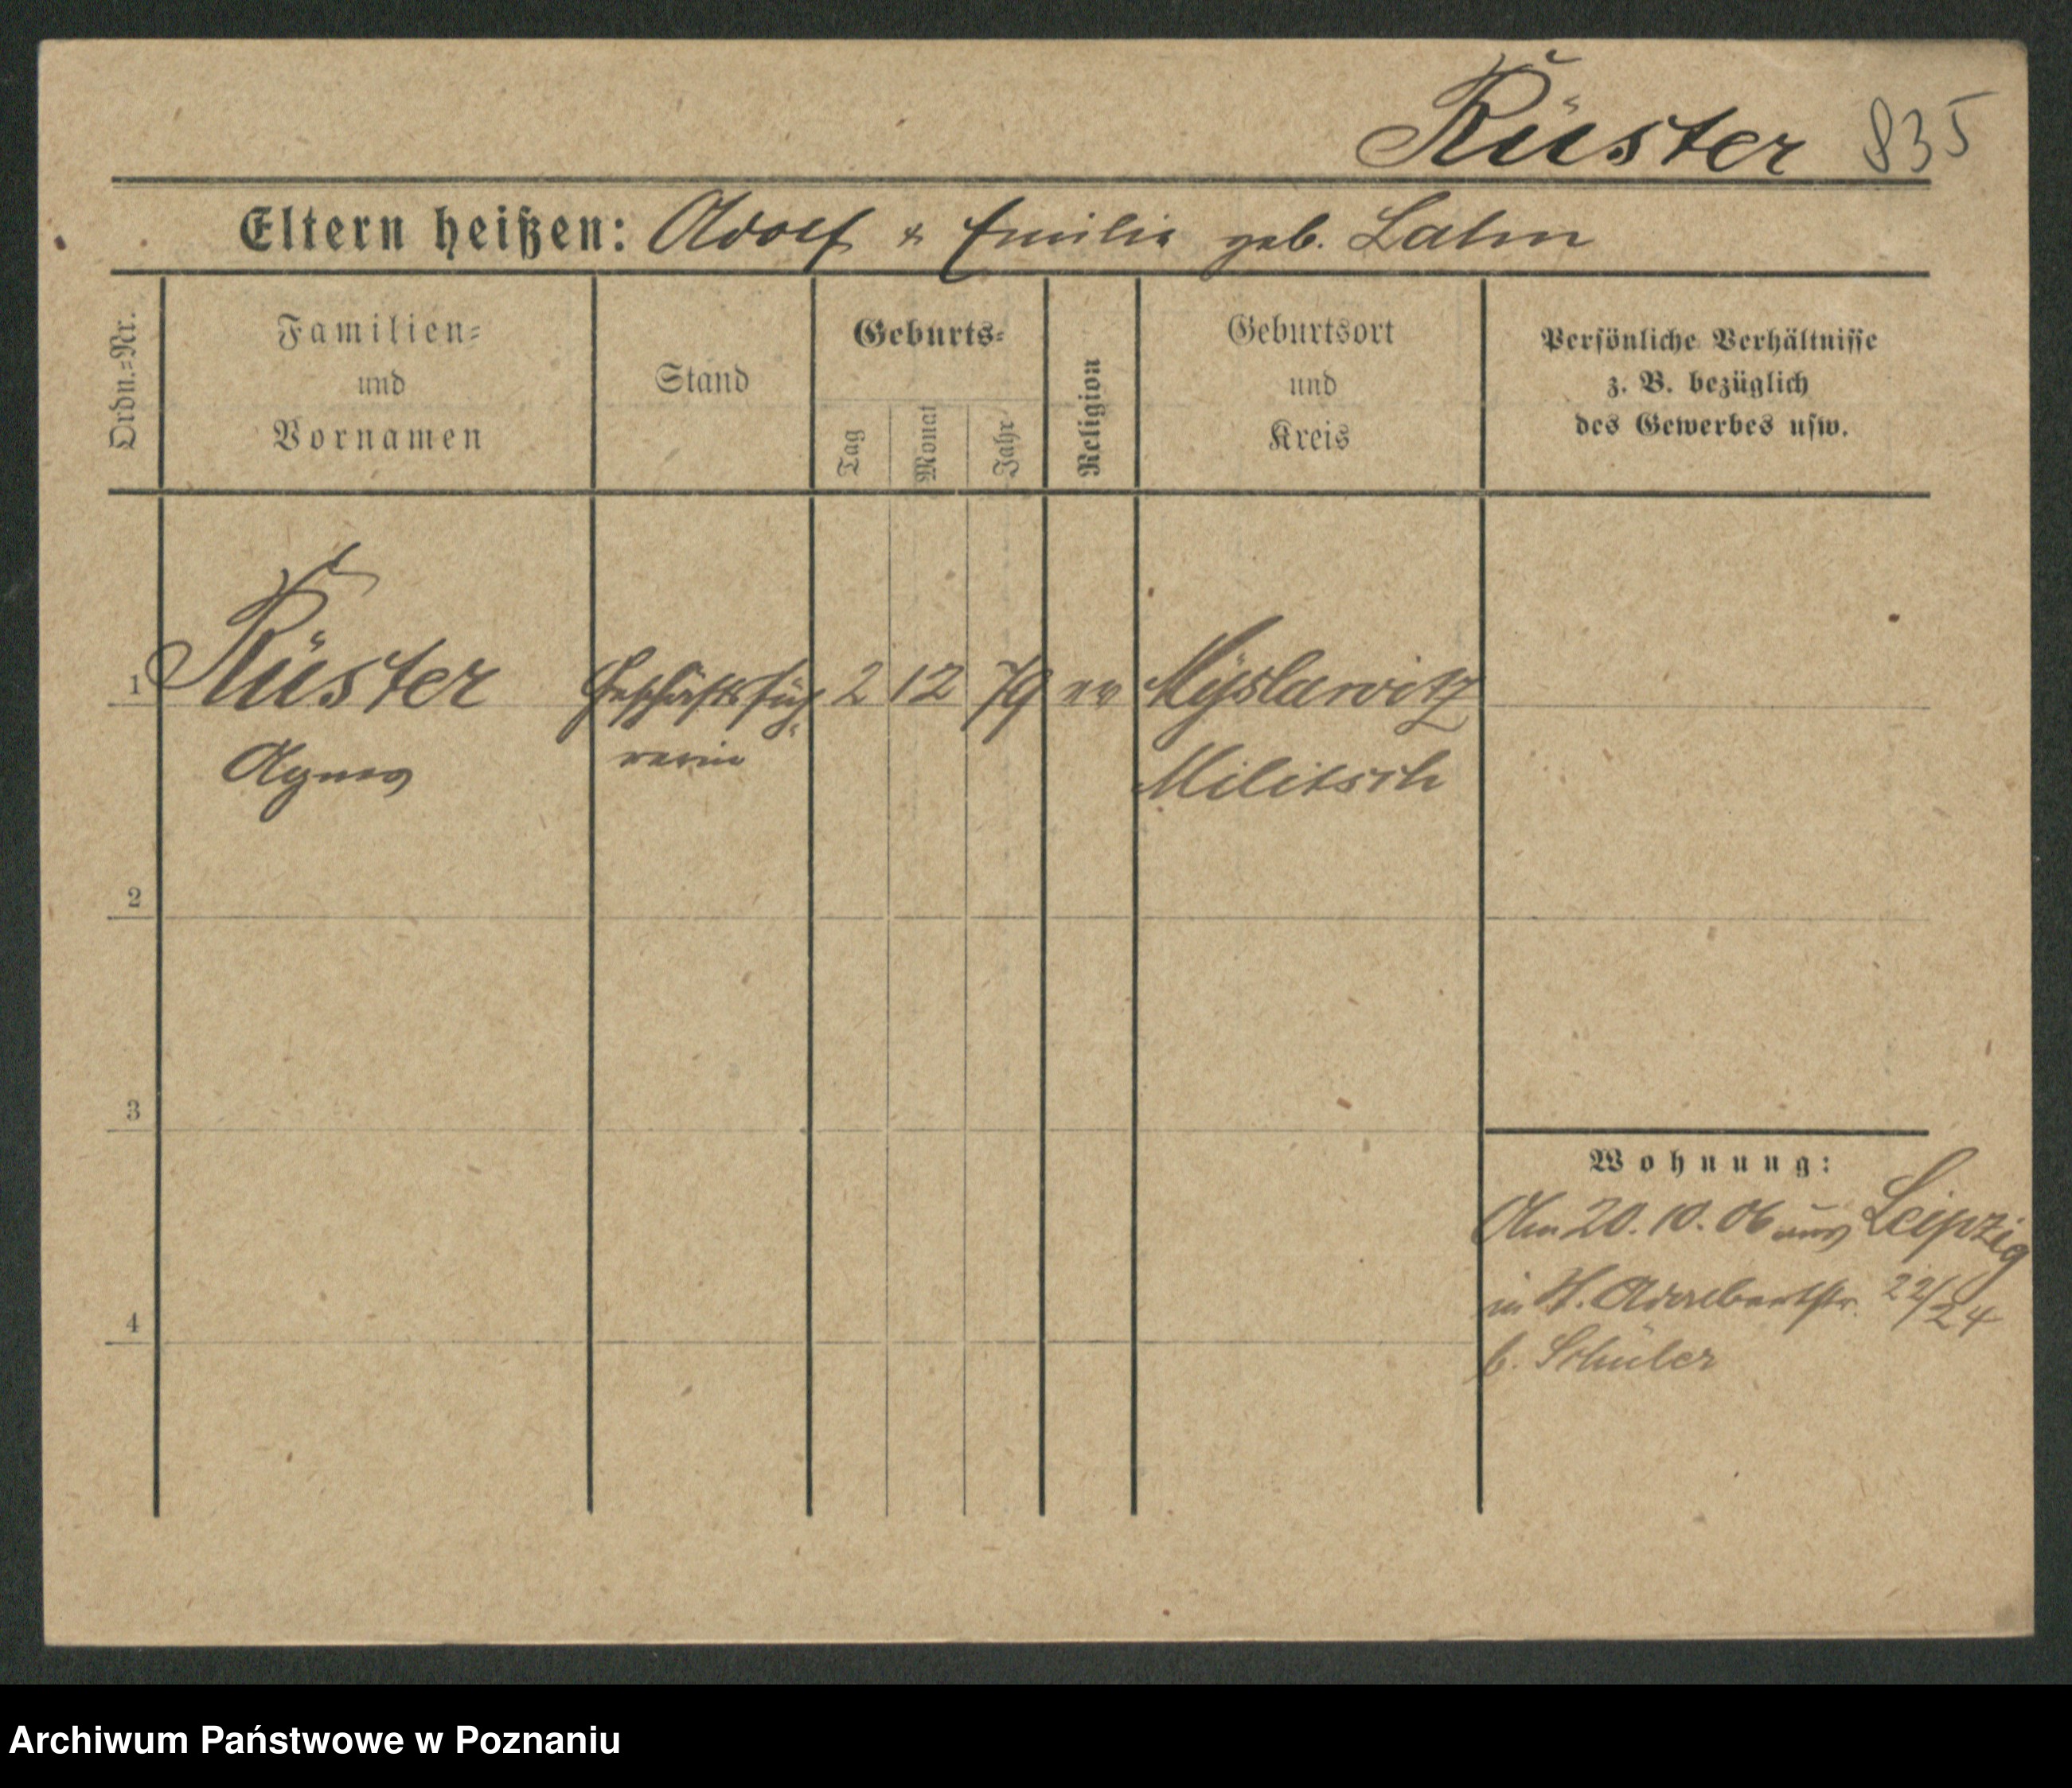 Rüster 835
Eltern heißen: Adolf & Emilie geb. Lahm
Ordn.=Nr.
Familien=
und
Vornamen
Stand
Geburts=
Tag
Monat
Jahr
Religion
Geburtsort
und
Kreis
Persönliche Verhältnisse
z. B. bezüglich
des Gewerbes usw.
1 Rüster Geschäftsfüh- 2 12 79 ev Myslawitz
Agnes rerin Militsch
2
3
Wohnung:
Am 20.10.06 aus Leipzig
in St. Adalbertstr. 22/24
4
b. Schüler
Archiwum Państwowe w Poznaniu